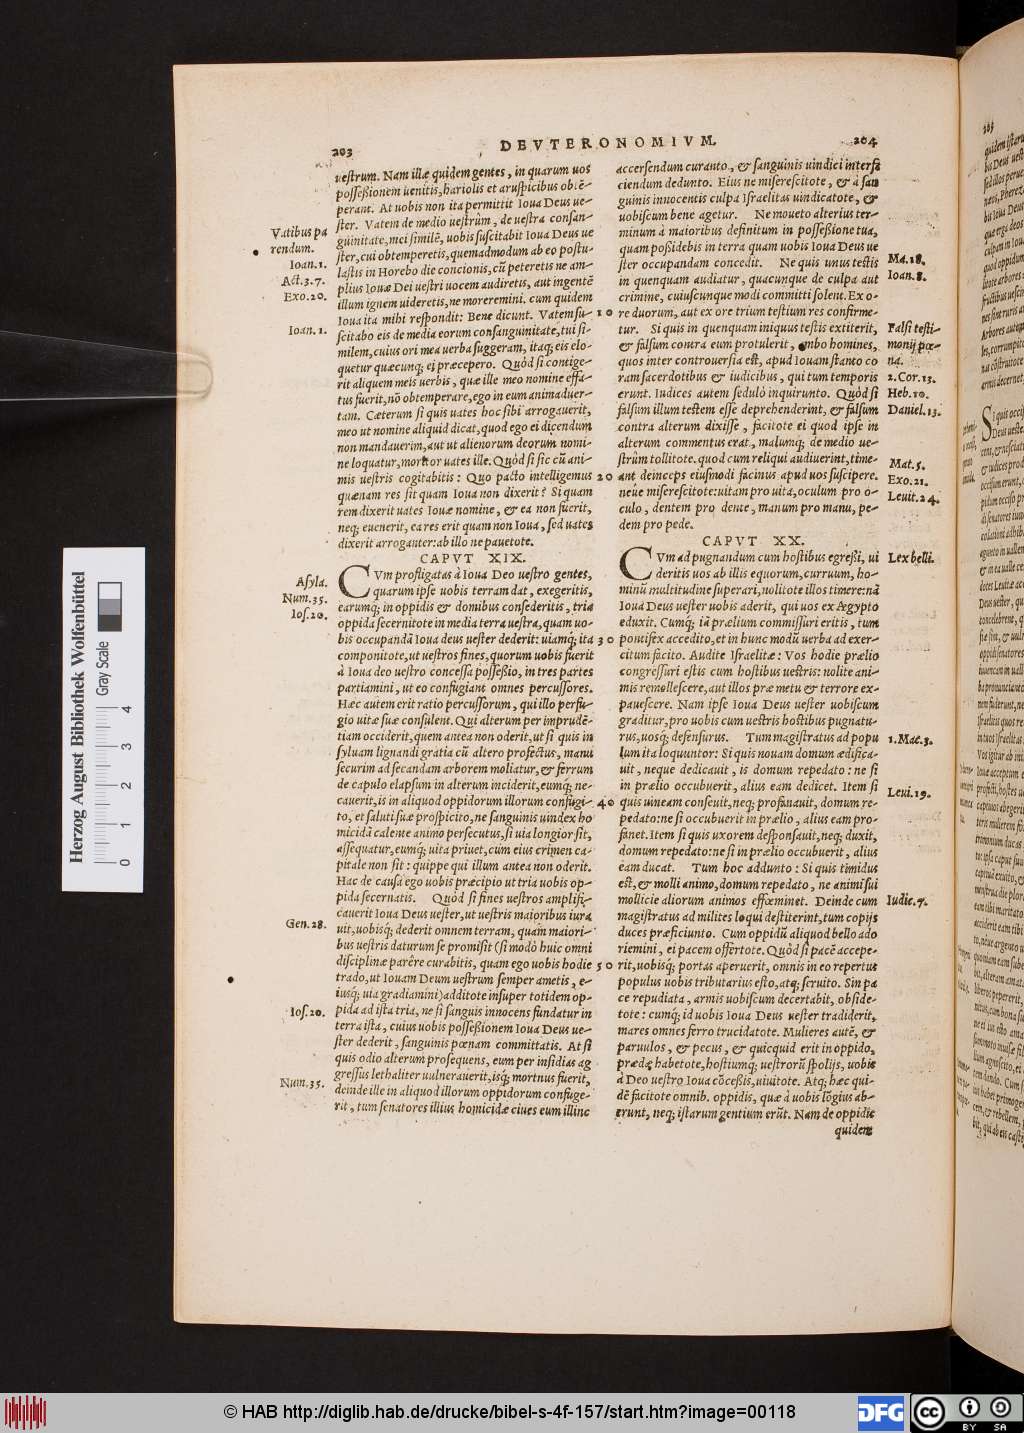 203
DEVTERONOMIVM.
204
uestrum. Nam illæ quidem gentes, in quarum uos
possessionem uenitis, hariolis et aruspicibus obtē-
perant. At uobis non ita permittit Ioua Deus ue-
ster. Vatem de medio uestrûm, de uestra consan-
guinitate, mei similē, uobis suscitabit Ioua Deus ue
ster, cui obtemperetis, quemadmodum ab eo postu-
lastis in Horebo die concionis, cū peteretis ne am-
plius Iouæ Dei uestri uocem audiretis, aut ingentē
illum ignem uideretis, ne moreremini. cum quidem
Ioua ita mihi respondit: Bene dicunt. Vatem su-
scitabo eis de media eorum consanguinitate, tui si-
milem, cuius ori mea uerba suggeram, itaq; eis elo-
quetur quæcunq; ei præcepero. Quòd si contige-
rit aliquem meis uerbis, quæ ille meo nomine effa-
tus fuerit, nō obtemperare, ego in eum animaduer-
tam. Cæterum si quis uates hoc sibi arrogauerit,
meo ut nomine aliquid dicat, quod ego ei dicendum
non mandauerim, aut ut alienorum deorum nomi-
ne loquatur, moritor uates ille. Quòd si sic cū ani-
mis uestris cogitabitis: Quo pacto intelligemus
quænam res sit quam Ioua non dixerit? Si quam
rem dixerit uates Iouæ nomine, & ea non fuerit,
neq; euenerit, ea res erit quam non Ioua, sed uates
dixerit arroganter: ab illo ne pauetote.
CAPVT XIX.
CVm profligatas à Ioua Deo uestro gentes,
quarum ipse uobis terram dat, exegeritis,
earumq; in oppidis & domibus consederitis, tria
oppida secernitote in media terra uestra, quam uo-
bis occupandā Ioua deus uester dederit: uiamq; ita
componitote, ut uestros fines, quorum uobis fuerit
à Ioua deo uestro concessa possessio, in tres partes
partiamini, ut eo confugiant omnes percussores.
Hæc autem erit ratio percussorum, qui illo perfu-
gio uitæ suæ consulent. Qui alterum per imprudē-
tiam occiderit, quem antea non oderit, ut si quis in
syluam lignandi gratia cū altero profectus, manu
securim ad secandam arborem moliatur, & ferrum
de capulo elapsum in alterum inciderit, eumq; ne-
cauerit, is in aliquod oppidorum illorum confugi-
to, et saluti suæ prospicito, ne sanguinis uindex ho
micidā calente animo persecutus, si uia longior sit,
assequatur, eumq; uita priuet, cùm eius crimen ca-
pitale non sit: quippe qui illum antea non oderit.
Hac de causa ego uobis præcipio ut tria uobis op-
pida secernatis. Quòd si fines uestros amplifi-
cauerit Ioua Deus uester, ut uestris maioribus iura
uit, uobisq; dederit omnem terram, quam maiori-
bus uestris daturum se promisit (si modò huic omni
disciplinæ parére curabitis, quam ego uobis hodie
trado, ut Iouam Deum uestrum semper ametis, e-
iusq; uia gradiamini) additote insuper totidem op-
pida ad ista tria, ne si sanguis innocens fundatur in
terra ista, cuius uobis possessionem Ioua Deus ue-
ster dederit, sanguinis pœnam committatis. At si
quis odio alterum prosequens, eum per insidias ag
gressus lethaliter uulnerauerit, isq; mortuus fuerit,
deinde ille in aliquod illorum oppidorum confuge-
rit, tum senatores illius homicidæ ciues eum illinc
Vatibus pa
rendum.
Ioan.1.
Act.3.7.
Exo.20.
Ioan.1.
Asyla.
Num.35.
Ios.20.
Gen.28.
Ios.20.
Num.35.
10
20
30
40
50
accersendum curanto, & sanguinis uindici interfi
ciendum dedunto. Eius ne miserescitote, & à san
guinis innocentis culpa Israelitas uindicatote, &
uobiscum bene agetur. Ne moueto alterius ter-
minum à maioribus definitum in possessione tua,
quam possidebis in terra quam uobis Ioua Deus ue
ster occupandam concedit. Ne quis unus testis
in quenquam audiatur, quacunque de culpa aut
crimine, cuiuscunque modi committi solent. Ex o-
re duorum, aut ex ore trium testium res confirme-
tur. Si quis in quenquam iniquus testis extiterit,
& falsum contra eum protulerit, ambo homines,
quos inter controuersia est, apud Iouam stanto co
ram sacerdotibus & iudicibus, qui tum temporis
erunt. Iudices autem sedulò inquirunto. Quòd si
falsum illum testem esse deprehenderint, & falsum
contra alterum dixisse, facitote ei quod ipse in
alterum commentus erat, malumq; de medio ue-
strûm tollitote. quod cum reliqui audiuerint, time-
ant deinceps eiusmodi facinus apud uos suscipere.
neúe miserescitote: uitam pro uita, oculum pro o-
culo, dentem pro dente, manum pro manu, pe-
dem pro pede.
CAPVT XX.
CVm ad pugnandum cum hostibus egressi, ui
deritis uos ab illis equorum, curruum, ho-
minū multitudine superari, nolitote illos timere: nā
Ioua Deus uester uobis aderit, qui uos ex Ægypto
eduxit. Cumq; iā prælium commissuri eritis, tum
pontifex accedito, et in hunc modū uerba ad exer-
citum facito. Audite Israelitæ: Vos hodie prælio
congressuri estis cum hostibus uestris: nolite ani-
mis remollescere, aut illos præ metu & terrore ex-
pauescere. Nam ipse Ioua Deus uester uobiscum
graditur, pro uobis cum uestris hostibus pugnatu-
rus, uosq; defensurus. Tum magistratus ad popu
lum ita loquuntor: Si quis nouam domum ædifica-
uit, neque dedicauit, is domum repedato: ne si
in prælio occubuerit, alius eam dedicet. Item si
quis uineam conseuit, neq; profanauit, domum re-
pedato: ne si occubuerit in prælio, alius eam pro-
fanet. Item si quis uxorem desponsauit, neq; duxit,
domum repedato: ne si in prælio occubuerit, alius
eam ducat. Tum hoc addunto: Si quis timidus
est, & molli animo, domum repedato, ne animi sui
mollicie aliorum animos effœminet. Deinde cum
magistratus ad milites loqui destiterint, tum copijs
duces præficiunto. Cum oppidū aliquod bello ado
riemini, ei pacem offertote. Quòd si pacē accepe-
rit, uobisq; portas aperuerit, omnis in eo repertus
populus uobis tributarius esto, atq; seruito. Sin pa
ce repudiata, armis uobiscum decertabit, obside-
tote: cumq; id uobis Ioua Deus uester tradiderit,
mares omnes ferro trucidatote. Mulieres autē, &
paruulos, & pecus, & quicquid erit in oppido,
prædæ habetote, hostiumq; uestrorū spolijs, uobis
à Deo uestro Ioua cōcessis, uiuitote. Atq; hæc qui-
dē facitote omnib. oppidis, quæ à uobis lōgius ab-
erunt, neq; istarum gentium erūt. Nam de oppidis
quidem
Ma.18.
Ioan.8.
Falsi testi-
monij pœ-
na.
2.Cor.13.
Heb.10.
Daniel.13.
Mat.5.
Exo.21.
Leuit.24.
Lex belli.
1.Mac.3.
Leui.19.
Iudic.7.
Herzog August Bibliothek Wolfenbüttel
Gray Scale
0 1 2 3 4
© HAB http://diglib.hab.de/drucke/bibel-s-4f-157/start.htm?image=00118
DFG
cc
BY SA